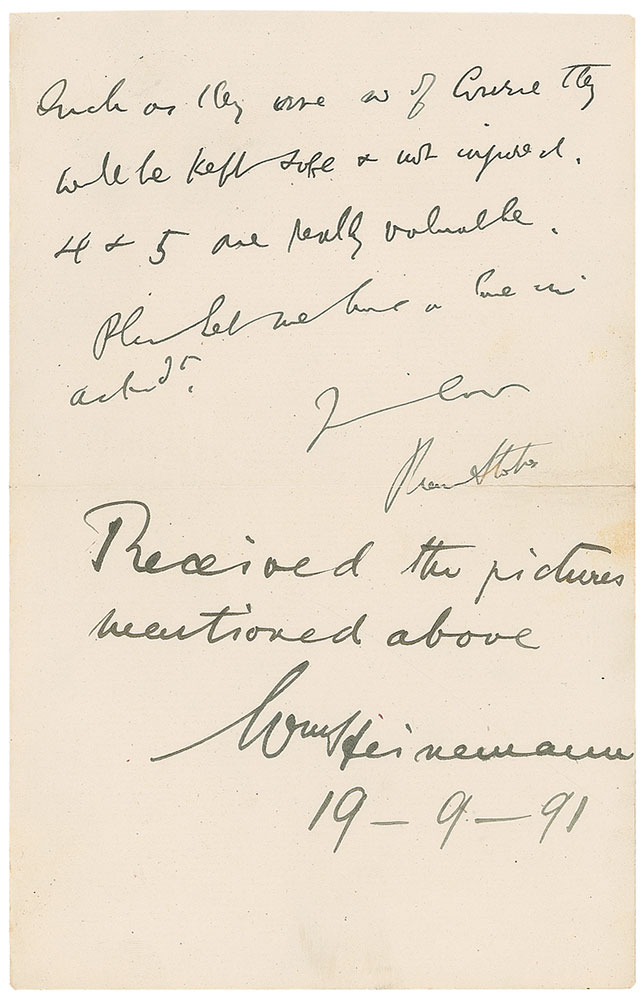 such as they are & of course they
will be kept safe & not injured.
4 & 5 are really valuable.
Please let me have a line in
ackdt.
Yours
Bram Stoker
Received the pictures
mentioned above
Wm Heinemann
19 - 9 - 91